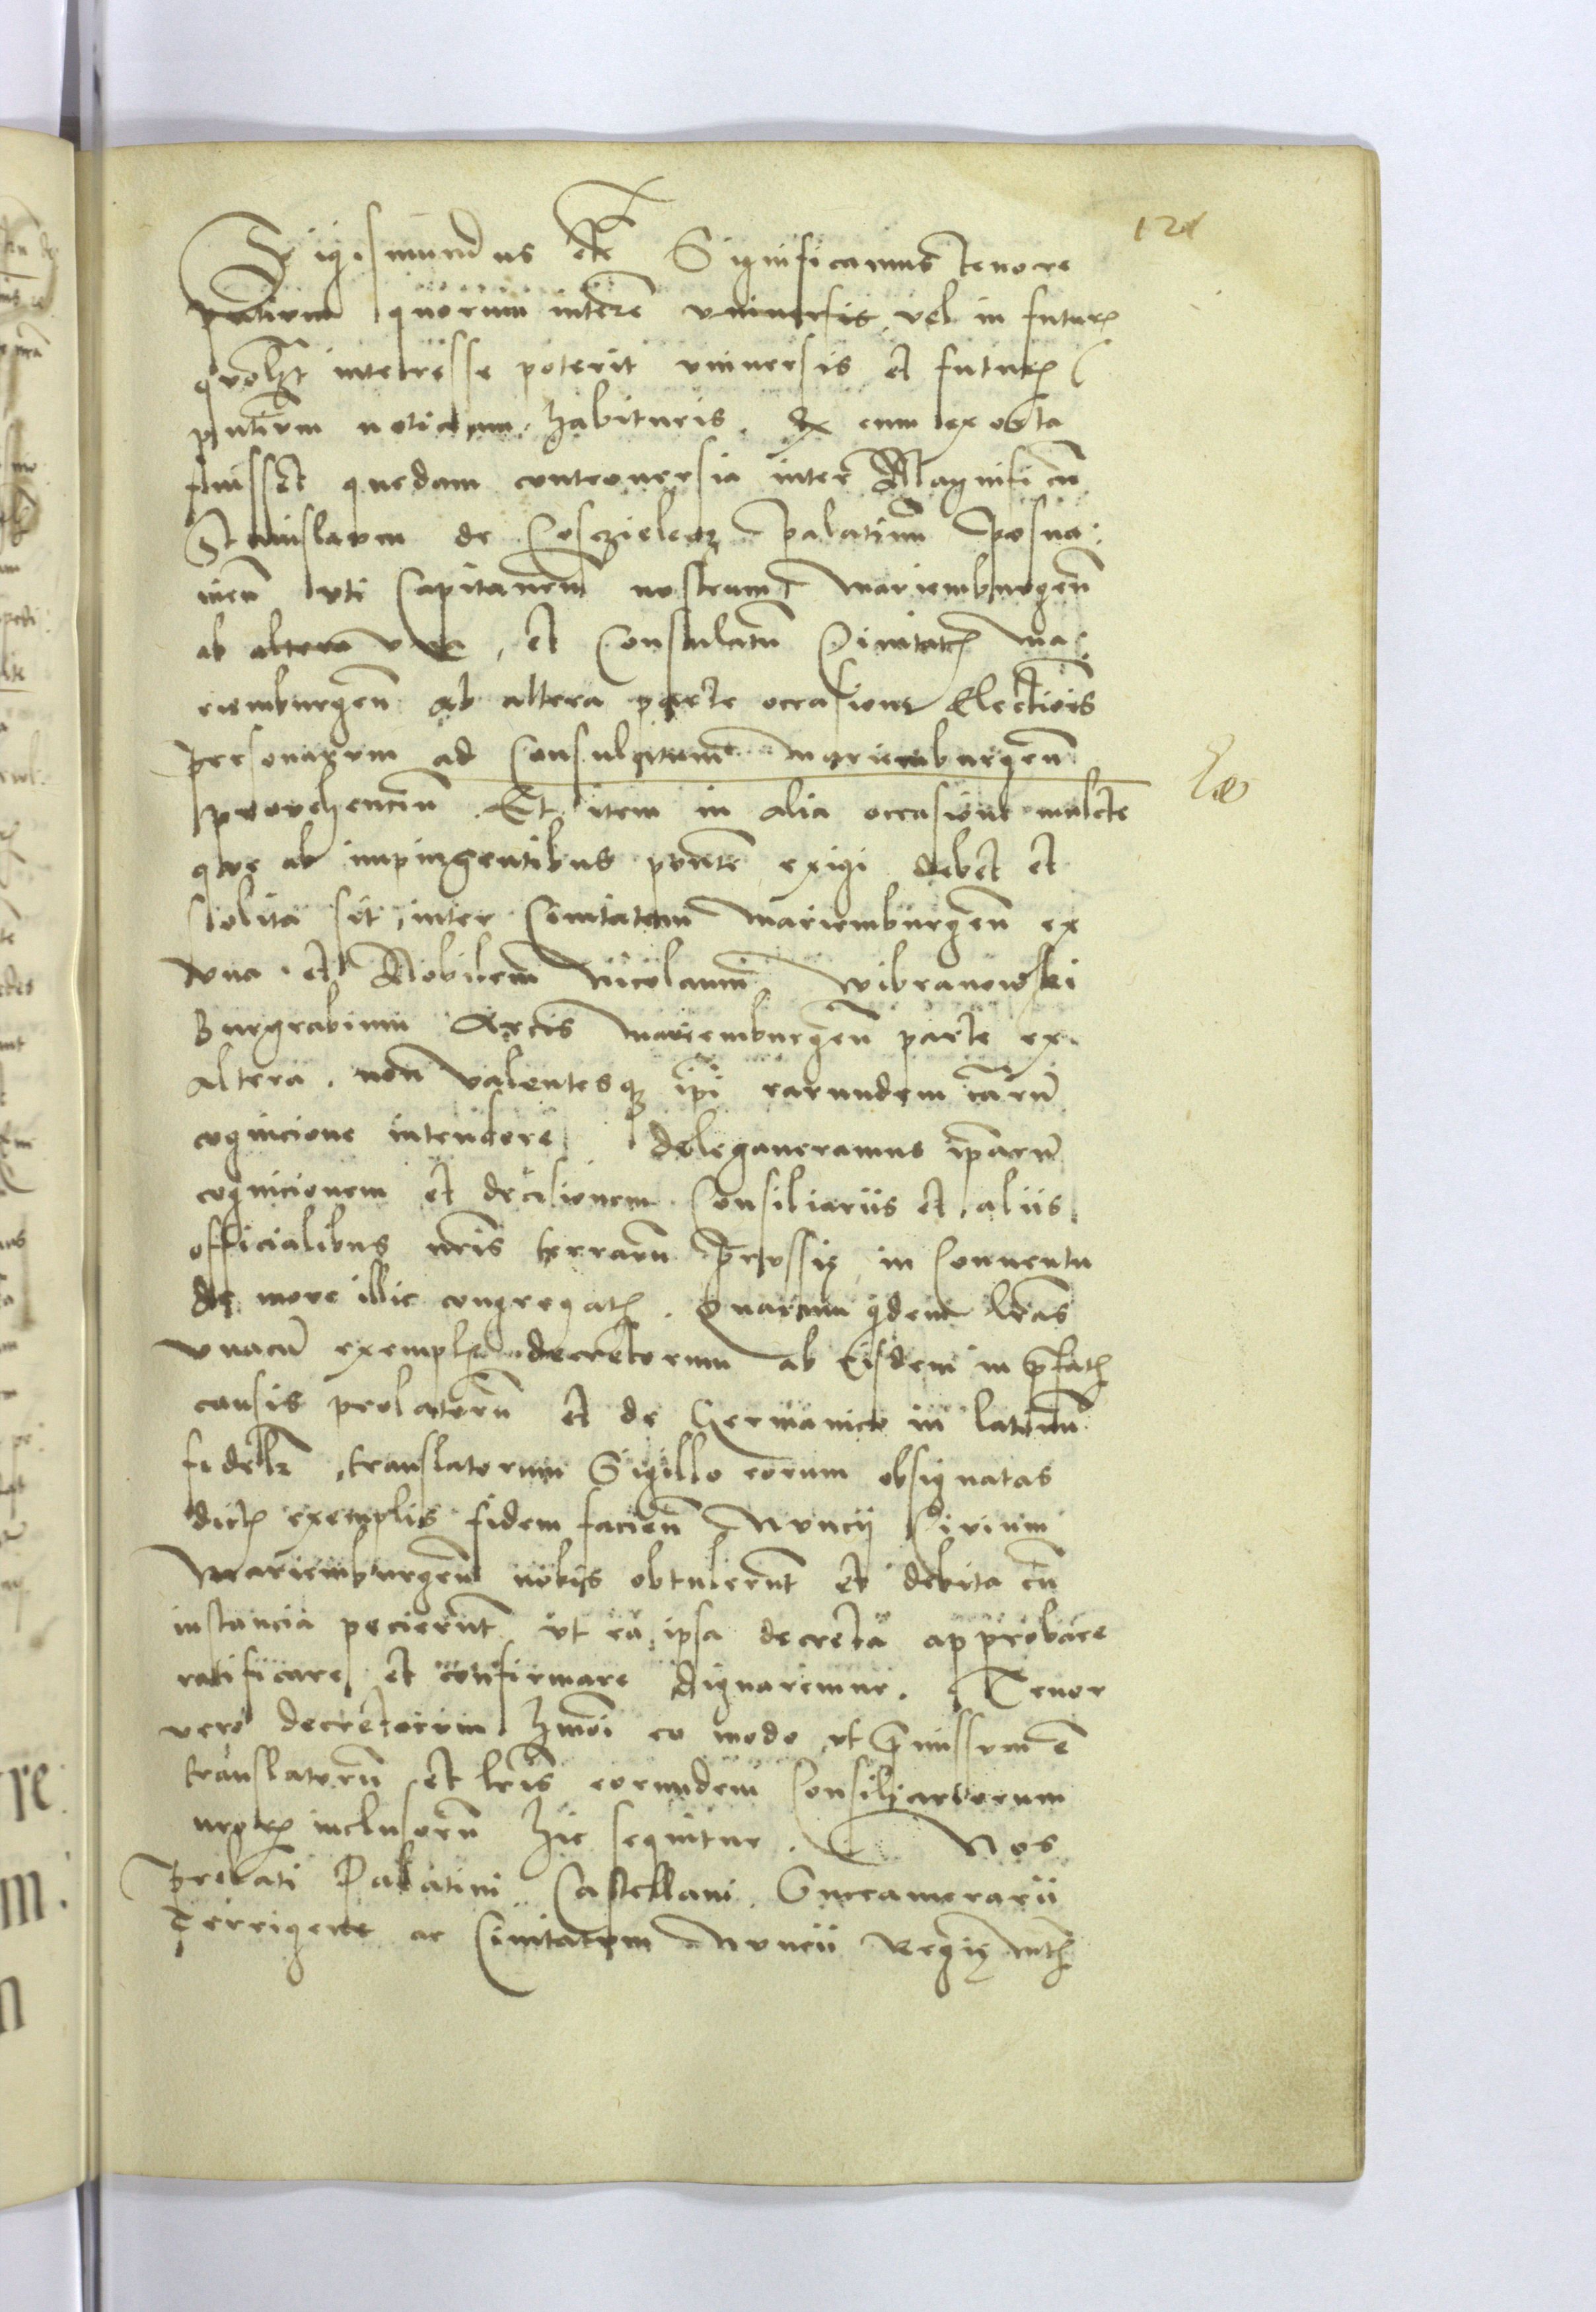 121
Sigismundus etc̄ Significamus tenore
pn̄tium quorum interē vniuersis vel in futurꝭ
quolꝫt interesse poterit vniuersis et futurꝭ
pn̄tium noticiam habituris. Q cum exorta
fuisset quedam controuersia inter Magnificū
Stanislaum de Cosczielecz palatinū Posna:
nien̄ vti Capitaneum nostrum Mariemburgen̄
ab altera vna, et Consulatū Ciuitatꝭ Ma:
riemburgen̄ ab altera parte occasione Electiōis
personarum ad Consulatum Mariemburgen̄
prouehenciū. Et item in alia occasione mulcte
que ab impingentibus pontē exigi debet et
solita sit, inter Ciuitatem Mariemburgen̄ ex
vna. et Nobilem Nicolaum Wibranowski
Burgrabium Arcis Mariemburgen̄ parte ex
altera. non valentesqꝫ ip̄i earundem cārū
cognicione intendere delegaueramus ip̄arū
cognicionem et decisionem Consiliariis et aliis
officialibus nr̄is terrarū Prussię in Conuentu
de more illic congregatꝭ. Quarum qdem lr̄as
vnacū exemplꝭ decretorum ab Eisdem in p̄fatꝭ
causis prolatorū et de Germanico in latinū
fidelꝫ translatorum Sigillo eorum obsignatas
dictꝭ exemplis fidem facien̄ Nuncij Ciuium
Mariemburgen̄ nobis obtulerūt et debita cū
instancia pecierūt vt ea ipsa decreta approbare
ratificare et confirmare dignaremur. Tenor
vero decretorum hmōi eo modo vt p̄missum ē
translatorū et lr̄is eorundem Consiliariorum
nrorꝭ inclusorū hic sequitur. Nos
Prelati Palatini Castellani Succamerarii
Terrigene ac Ciuitatum Nuncii Regię Mtꝭ